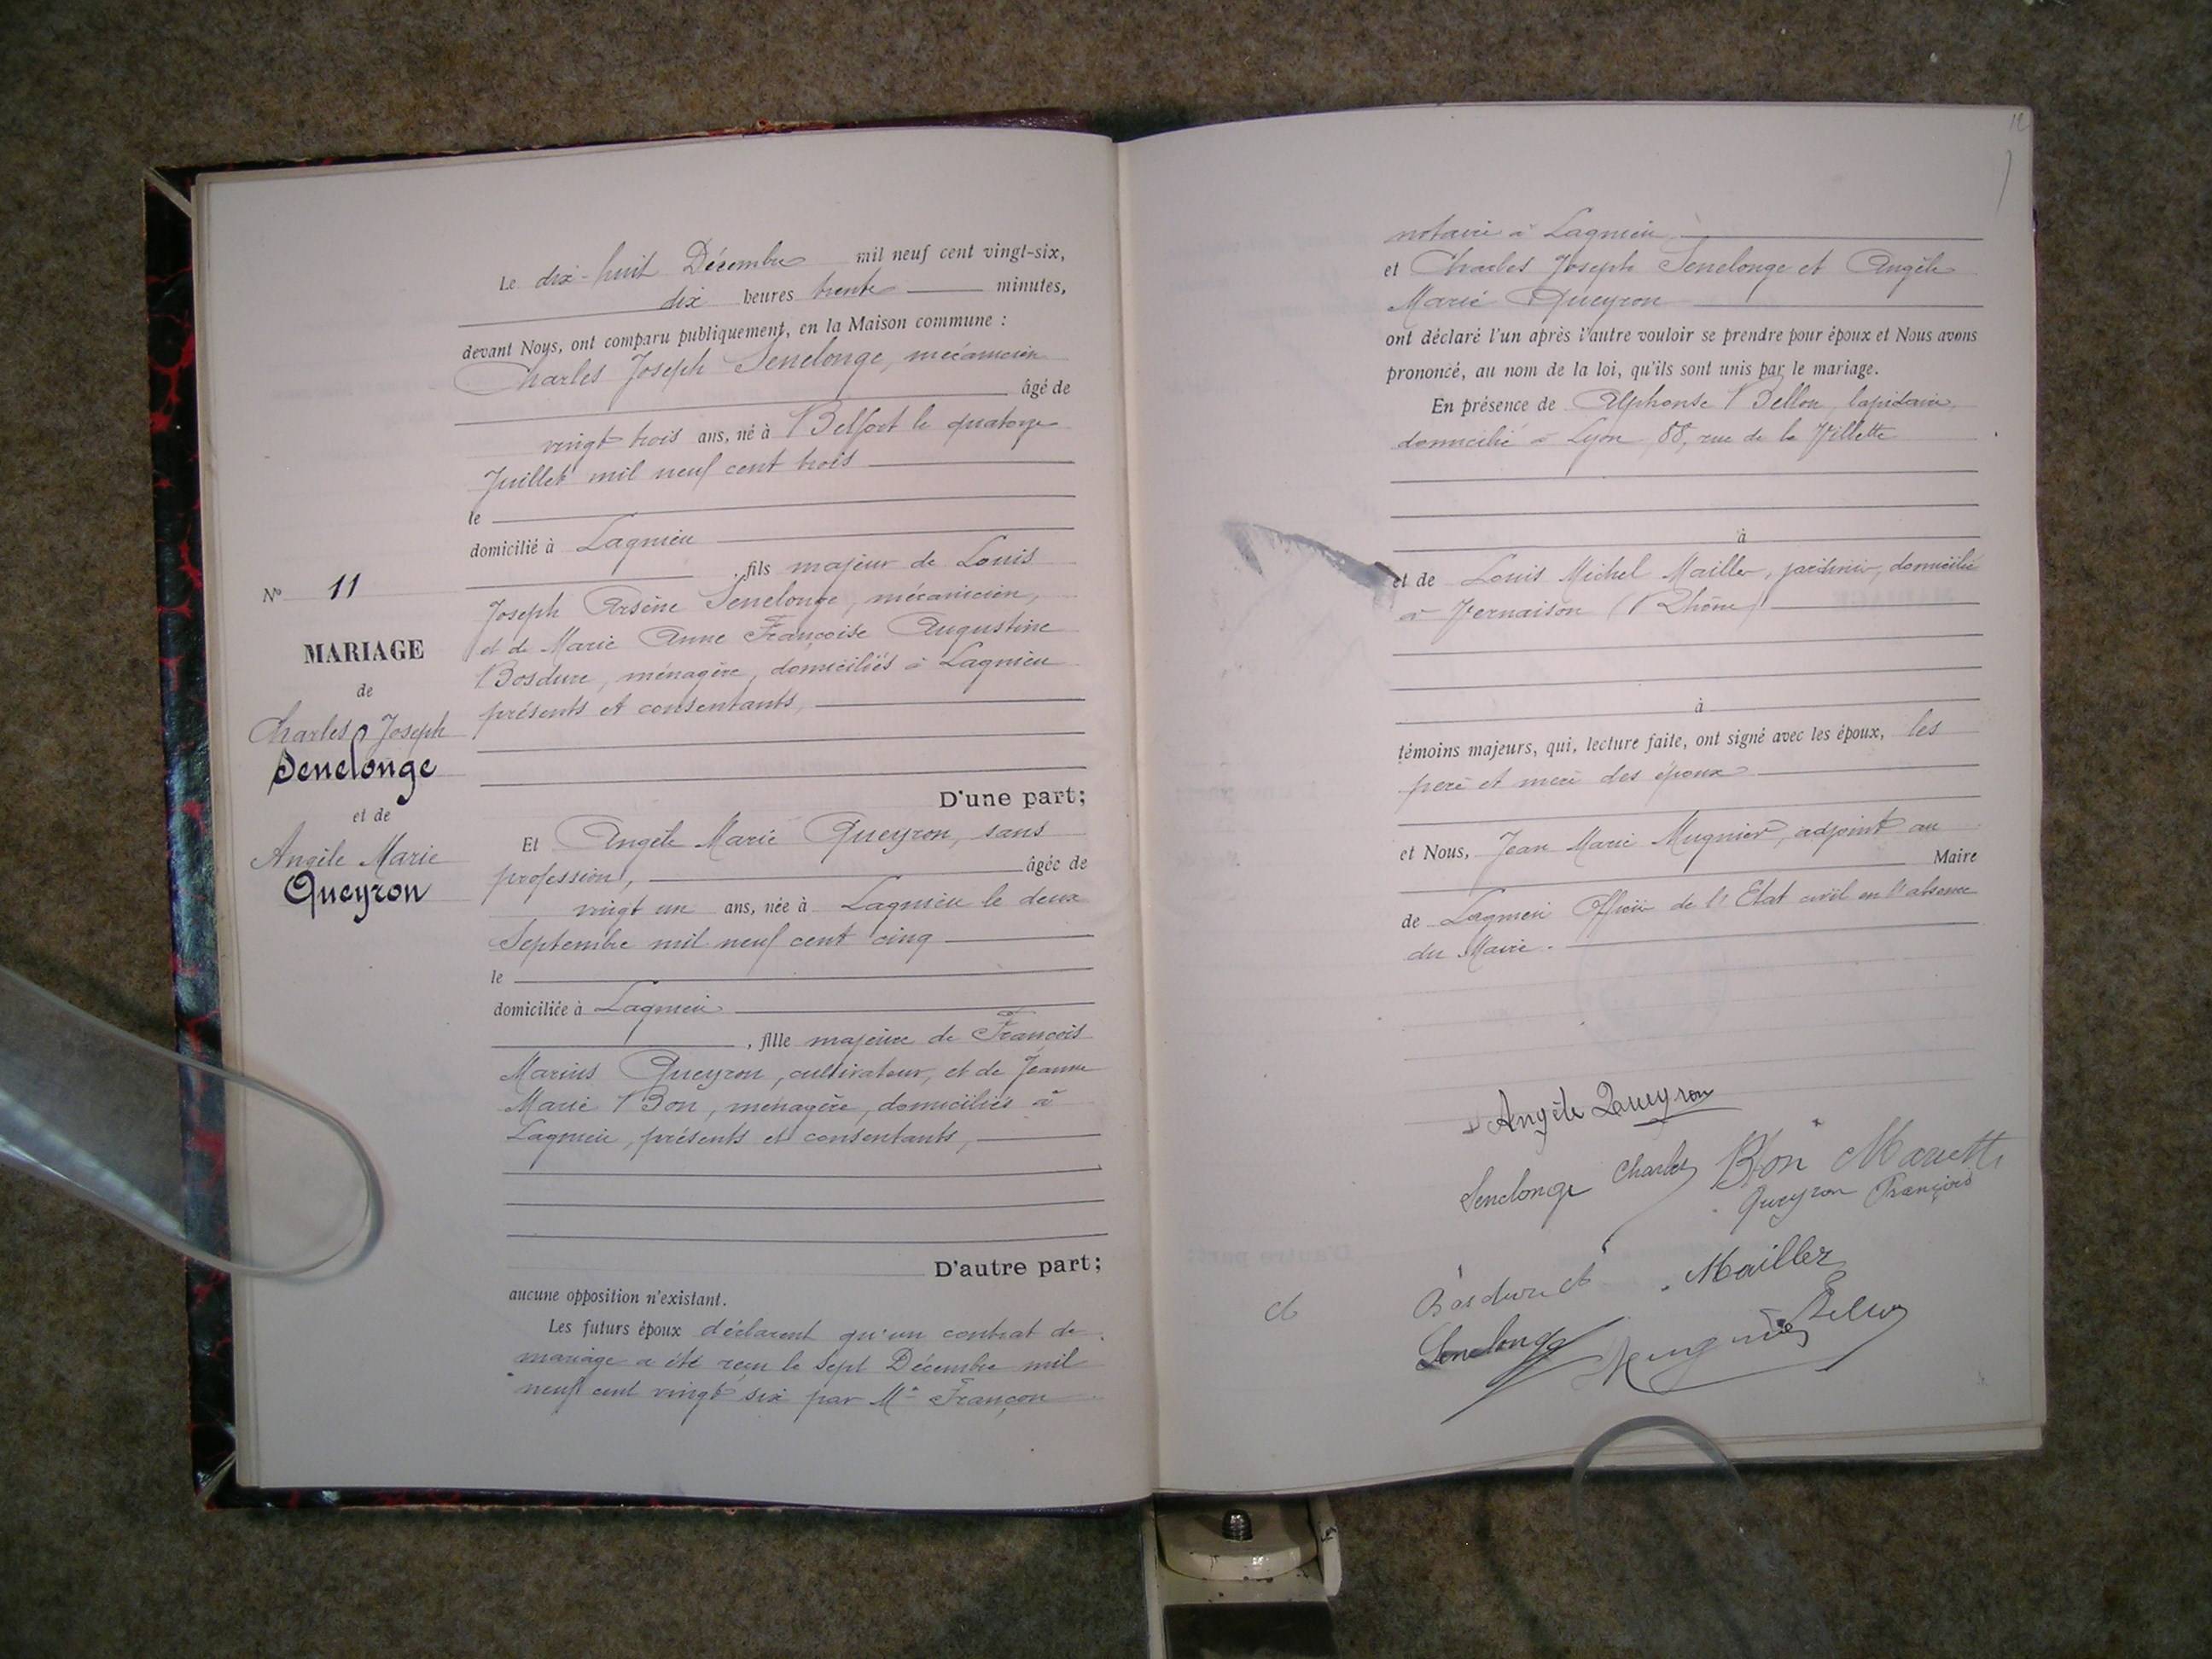 Le dix-huit Décembre mil neuf cent vingt-six,
dix heures trente minutes,
devant Nous, ont comparu publiquement, en la Maison commune :
Charles Joseph Senelonge, mécanicien
âgé de
vingt trois ans, né à Belfort le quatorze
Juillet mil neuf cent trois
le
domicilié à Lagnieu
, fils majeur de Louis
Joseph Arsène Senelonge, mécanicien,
et de Marie Anne Françoise Augustine
Bosdure, ménagère, domiciliés à Lagnieu
présents et consentants,
D'une part;
Nº 11
MARIAGE
de
Charles Joseph
Senelonge
et de
Angèle Marie
Queyron
Et Angèle Marie Queyron, sans
profession, âgée de
vingt un ans, née à Lagnieu le deux
Septembre mil neuf cent cinq
le
domiciliée à Lagnieu
, fille majeure de François
Marius Queyron, cultivateur, et de Jeanne
Marie Bon, ménagère, domiciliés à
Lagnieu, présents et consentants,
D'autre part;
aucune opposition n'existant.
Les futurs époux déclarent qu'un contrat de
mariage a été reçu le sept Décembre mil
neuf cent vingt six par Mº Françon
12
notaire à Lagnieu
et Charles Joseph Senelonge et Angèle
Marie Queyron
ont déclaré l'un après l'autre vouloir se prendre pour époux et Nous avons
prononcé, au nom de la loi, qu'ils sont unis par le mariage.
En présence de Alphonse Bellon, lapidaire,
domicilié à Lyon, 88, rue de la Villette
à
et de Louis Michel Mailler, jardinier, domicilié
à Vernaison (Rhône)
à
témoins majeurs, qui, lecture faite, ont signé avec les époux, les
père et mère des époux
et Nous, Jean Marie Mugnier, adjoint au
Maire
de Lagnieu Officier de l'Etat civil en l'absence
du Maire.
Angèle Queyron
Senelonge Charles Bon Mariette
Queyron François
Bosdure A Mailler
Senelonge Mugnier Bellon